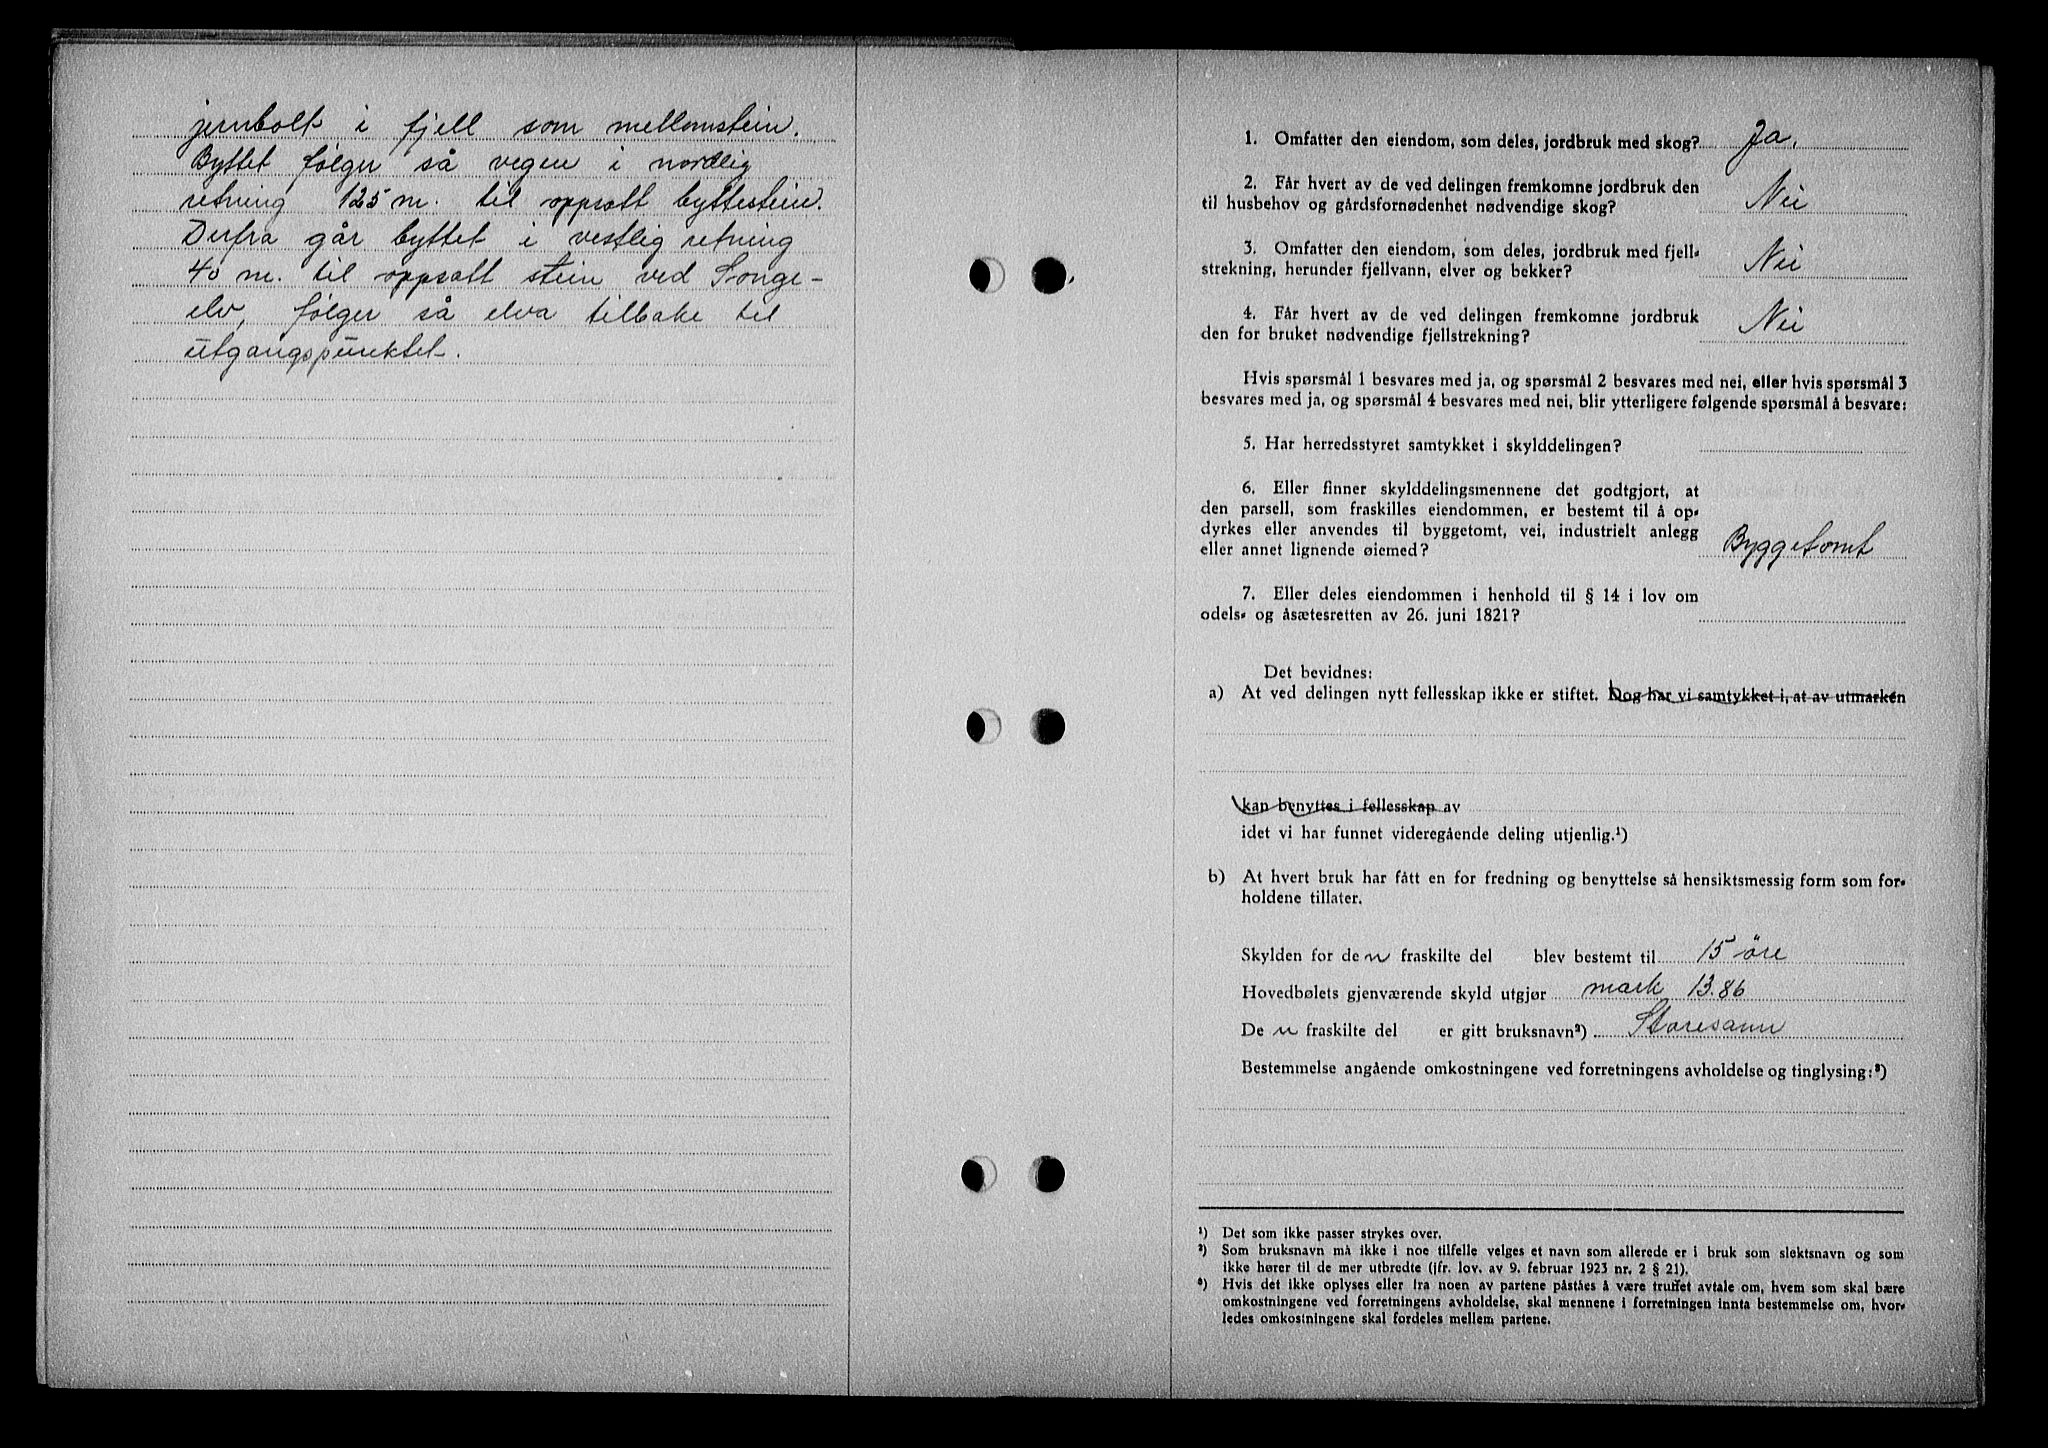 jernbolt i fjell som mellomstein.
Byttet følger så vegen i nordlig
retning 125 m. til oppsatt byttestein.
Derfra går byttet i vestlig retning
40 m. til oppsatt stein ved Songe-
elv, følger så elva tilbake til
utgangspunktet.
1. Omfatter den eiendom, som deles, jordbruk med skog? Ja.
2. Får hvert av de ved delingen fremkomne jordbruk den
til husbehov og gårdsfornødenhet nødvendige skog? Nei
3. Omfatter den eiendom, som deles, jordbruk med fjell-
strekning, herunder fjellvann, elver og bekker? Nei
4. Får hvert av de ved delingen fremkomne jordbruk
den for bruket nødvendige fjellstrekning? Nei
Hvis spørsmål 1 besvares med ja, og spørsmål 2 besvares med nei, eller hvis spørsmål 3
besvares med ja, og spørsmål 4 besvares med nei, blir ytterligere følgende spørsmål å besvare:
5. Har herredsstyret samtykket i skylddelingen?
6. Eller finner skylddelingsmennene det godtgjort, at
den parsell, som fraskilles eiendommen, er bestemt til å op-
dyrkes eller anvendes til byggetomt, vei, industrielt anlegg
eller annet lignende øiemed? Byggetomt
7. Eller deles eiendommen i henhold til § 14 i lov om
odels- og åsætesretten av 26. juni 1821?
Det bevidnes:
a) At ved delingen nytt fellesskap ikke er stiftet. Dog har vi samtykket i, at av utmarken
kan benyttes i fellesskap av
idet vi har funnet videregående deling utjenlig.¹)
b) At hvert bruk har fått en for fredning og benyttelse så hensiktsmessig form som for-
holdene tillater.
Skylden for de n fraskilte del blev bestemt til 15 öre
Hovedbølets gjenværende skyld utgjør mark 13.86
De n fraskilte del er gitt bruksnavn²) Storesann
Bestemmelse angående omkostningene ved forretningens avholdelse og tinglysing:³)
¹) Det som ikke passer strykes over.
²) Som bruksnavn må ikke i noe tilfelle velges et navn som allerede er i bruk som slektsnavn og som
ikke hører til de mer utbredte (jfr. lov. av 9. februar 1923 nr. 2 § 21).
³) Hvis det ikke oplyses eller fra noen av partene påståes å være truffet avtale om, hvem som skal bære
omkostningene ved forretningens avholdelse, skal mennene i forretningen innta bestemmelse om, hvor-
ledes omkostningene skal fordeles mellem partene.